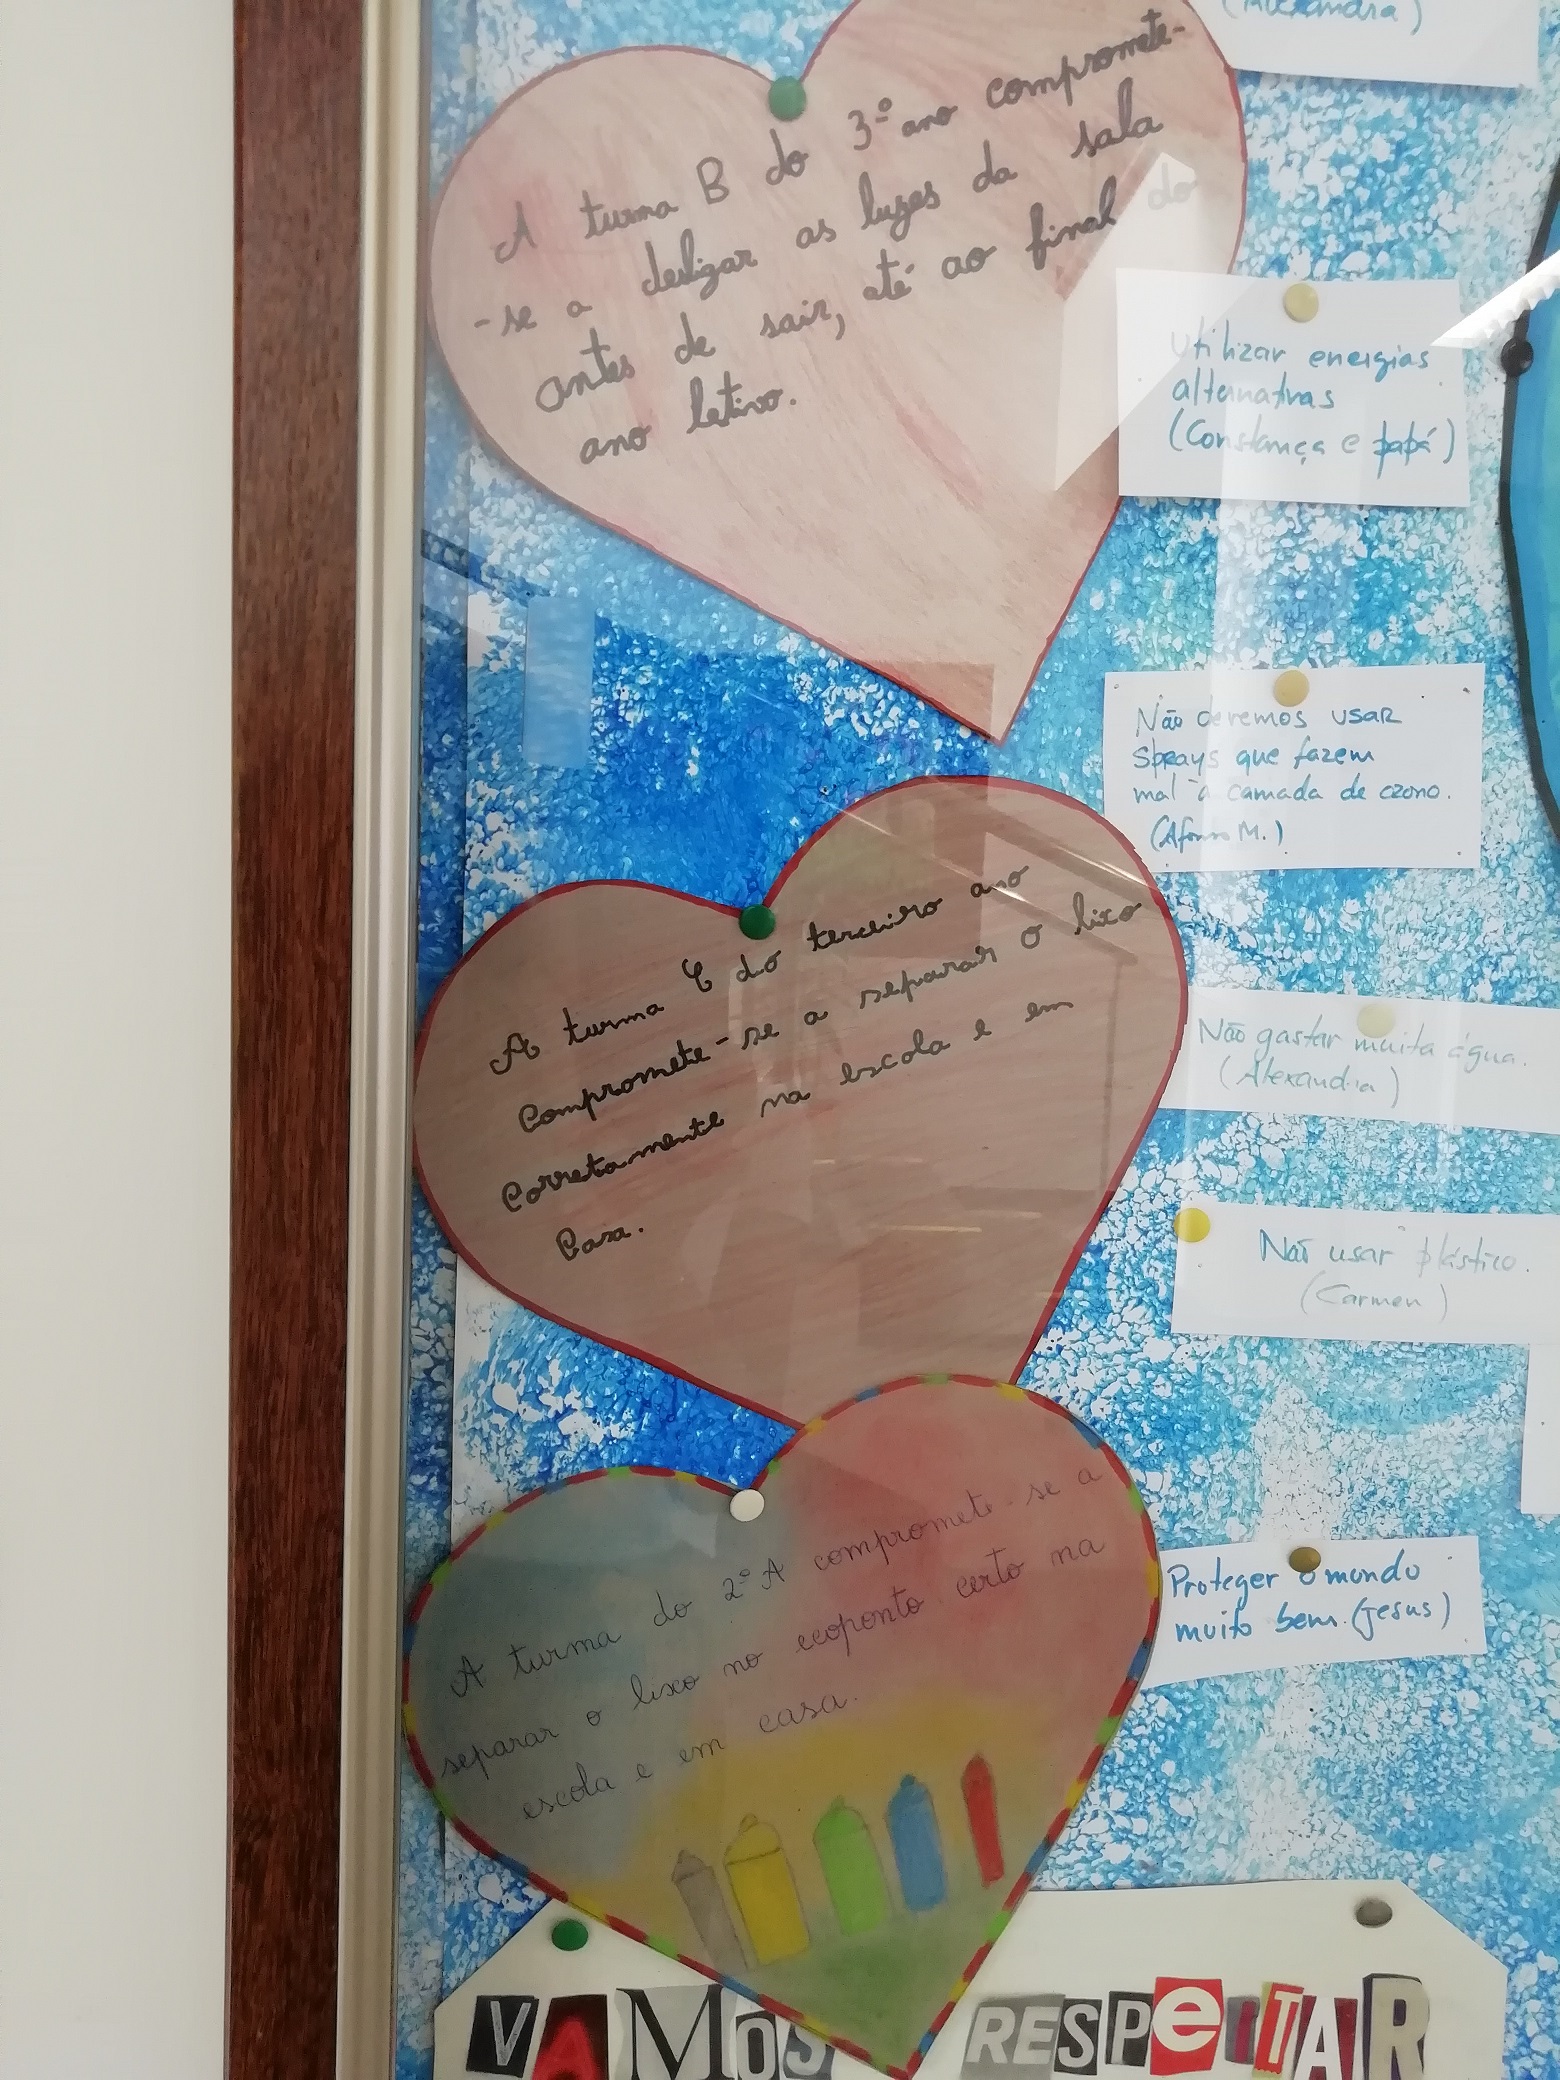 (Alexandra)
A turma B do 3º ano compromete-
-se a desligar as luzes da sala
antes de sair, até ao final do
ano letivo.
Utilizar energias
alternativas
(Constança e papá)
Não devemos usar
sprays que fazem
mal à camada de ozono.
(Afonso M.)
A turma C do terceiro ano
Compromete-se a separar o lixo
Corretamente na escola e em
Casa.
Não gastar muita água.
(Alexandra)
Não usar plástico.
(Carmen)
A turma do 2º A compromete-se a
separar o lixo no ecoponto certo na
escola e em casa.
Proteger o mundo
muito bem. (Jesus)
VAMOS RESPEITAR